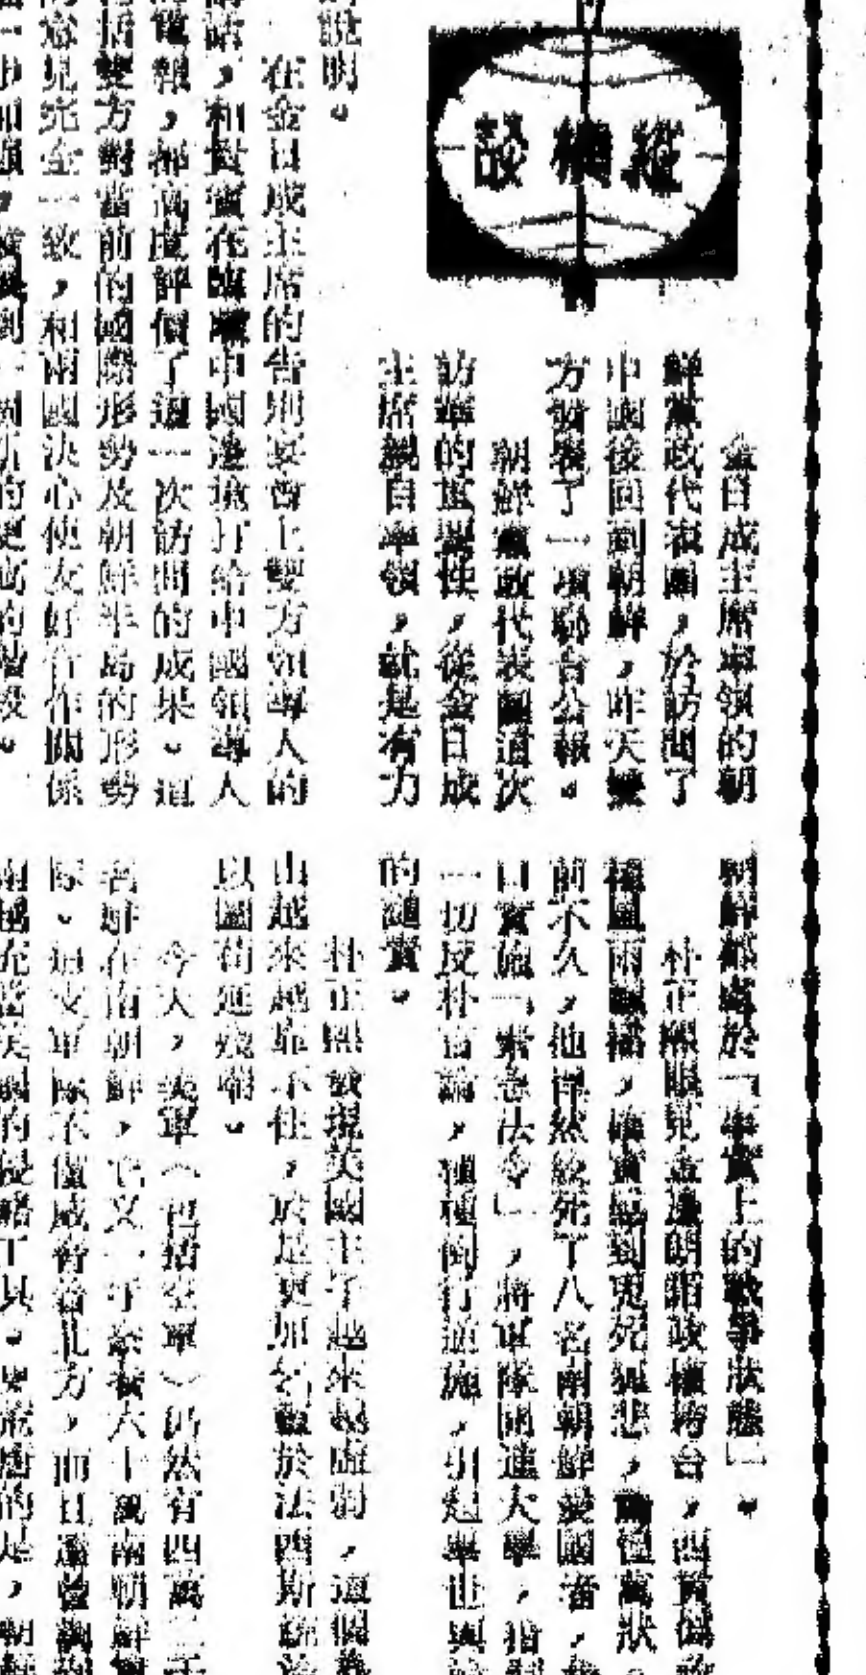 縱橫談
金日成主席率領的朝
鮮黨政代表團，於訪問了
中國後回到朝鮮，昨天雙
方發表了一項聯合公報。
朝鮮黨政代表團這次
訪華的重要性，從金日成
主席親自率領，就是有力
的說明。
在金日成主席的告別宴會上雙方領導人的
講話，和貴賓在臨離中國邊境打給中國領導人
的電報，都高度評價了這一次訪問的成果。這
包括雙方對當前的國際形勢及朝鮮半島的形勢
的意見完全一致，和兩國決心使友好合作關係
進一步加強，發展到一個新的更高的階段。
朝鮮都處於「事實上的戰爭狀態」。
朴正熙眼見金邊朗諾政權垮台，西貢偽政
權風雨飄搖，確實感到兔死狐悲，惶萬狀。
前不久，他悍然絞死了八名南朝鮮愛國者，
日實施「緊急法令」，將軍隊開進大學，
一切反朴言論，種種倒行逆施，引起舉世輿論
的譴責。
朴正熙發現美國主子越來越虛弱，這個靠
山越來越靠不住，於是更加乞靈於法西斯統治
以圖苟延殘喘。
今天，美軍（包括空軍）仍然有四萬二千
名駐在南朝鮮，它又一手豢養六十萬南朝鮮軍
隊。這支軍隊不僅威脅着北方，而且還曾調到
南越充當美國的侵略工具。更荒唐的是，朝鮮